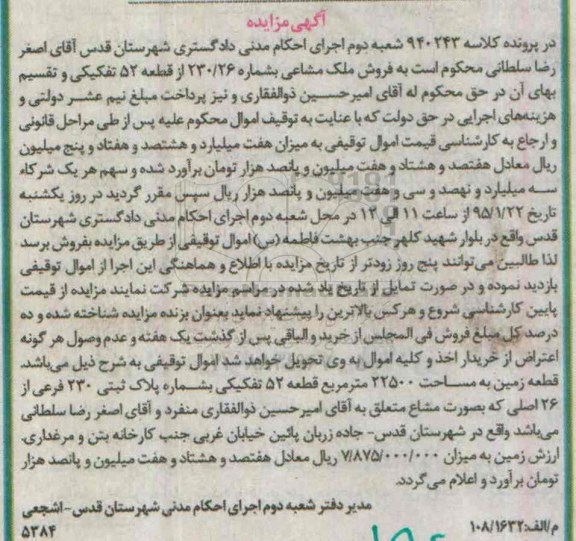 آگهی مزایده
در پرونده کلاسه ۹۴۰۲۴۳ شعبه دوم اجرای احکام مدنی دادگستری شهرستان قدس آقای اصغر
رضا سلطانی محکوم است به فروش ملک مشاعی بشماره ۲۳۰/۲۶ از قطعه ۵۲ تفکیکی و تقسیم
بهای آن در حق محکوم له آقای امیرحسین ذوالفقاری و نیز پرداخت مبلغ نیم عشر دولتی و
هزینه‌های اجرایی در حق دولت که با عنایت به توقیف اموال محکوم علیه پس از طی مراحل قانونی
و ارجاع به کارشناسی قیمت اموال توقیفی به میزان هفت میلیارد و هشتصد و هفتاد و پنج میلیون
ریال معادل هفتصد و هشتاد و هفت میلیون و پانصد هزار تومان برآورد شده و سهم هر یک شرکاء
سه میلیارد و نهصد و سی و هفت میلیون و پانصد هزار ریال سپس مقرر گردید در روز یکشنبه
تاریخ ۹۵/۱/۲۲ از ساعت ۱۱ الی ۱۲ در محل شعبه دوم اجرای احکام مدنی دادگستری شهرستان
قدس واقع در بلوار شهید کلهر جنب بهشت فاطمه (س) اموال توقیفی از طریق مزایده بفروش برسد
لذا طالبین می‌توانند پنج روز زودتر از تاریخ مزایده با اطلاع و هماهنگی این اجرا از اموال توقیفی
بازدید نموده و در صورت تمایل از تاریخ یاد شده در مراسم مزایده شرکت نمایند مزایده از قیمت
پایین کارشناسی شروع و هرکس بالاترین را پیشنهاد نماید بعنوان برنده مزایده شناخته شده و ده
درصد کل مبلغ فروش فی المجلس از خرید و الباقی پس از گذشت یک هفته و عدم وصول هر گونه
اعتراض از خریدار اخذ و کلیه اموال به وی تحویل خواهد شد اموال توقیفی به شرح ذیل می‌باشد.
قطعه زمین به مساحت ۲۲۵۰۰ مترمربع قطعه ۵۲ تفکیکی بشماره پلاک ثبتی ۲۳۰ فرعی از
۲۶ اصلی که بصورت مشاع متعلق به آقای امیرحسین ذوالفقاری منفرد و آقای اصغر رضا سلطانی
می‌باشد واقع در شهرستان قدس- جاده زربان پائین خیابان غربی جنب کارخانه بتن و مرغداری.
ارزش زمین به میزان ۷/۸۷۵/۰۰۰/۰۰۰ ریال معادل هفتصد و هشتاد و هفت میلیون و پانصد هزار
تومان برآورد و اعلام می‌گردد.
مدیر دفتر شعبه دوم اجرای احکام مدنی شهرستان قدس-اشجعی
م/الف:۱۰۸/۱۶۳۲
۵۳۸۴